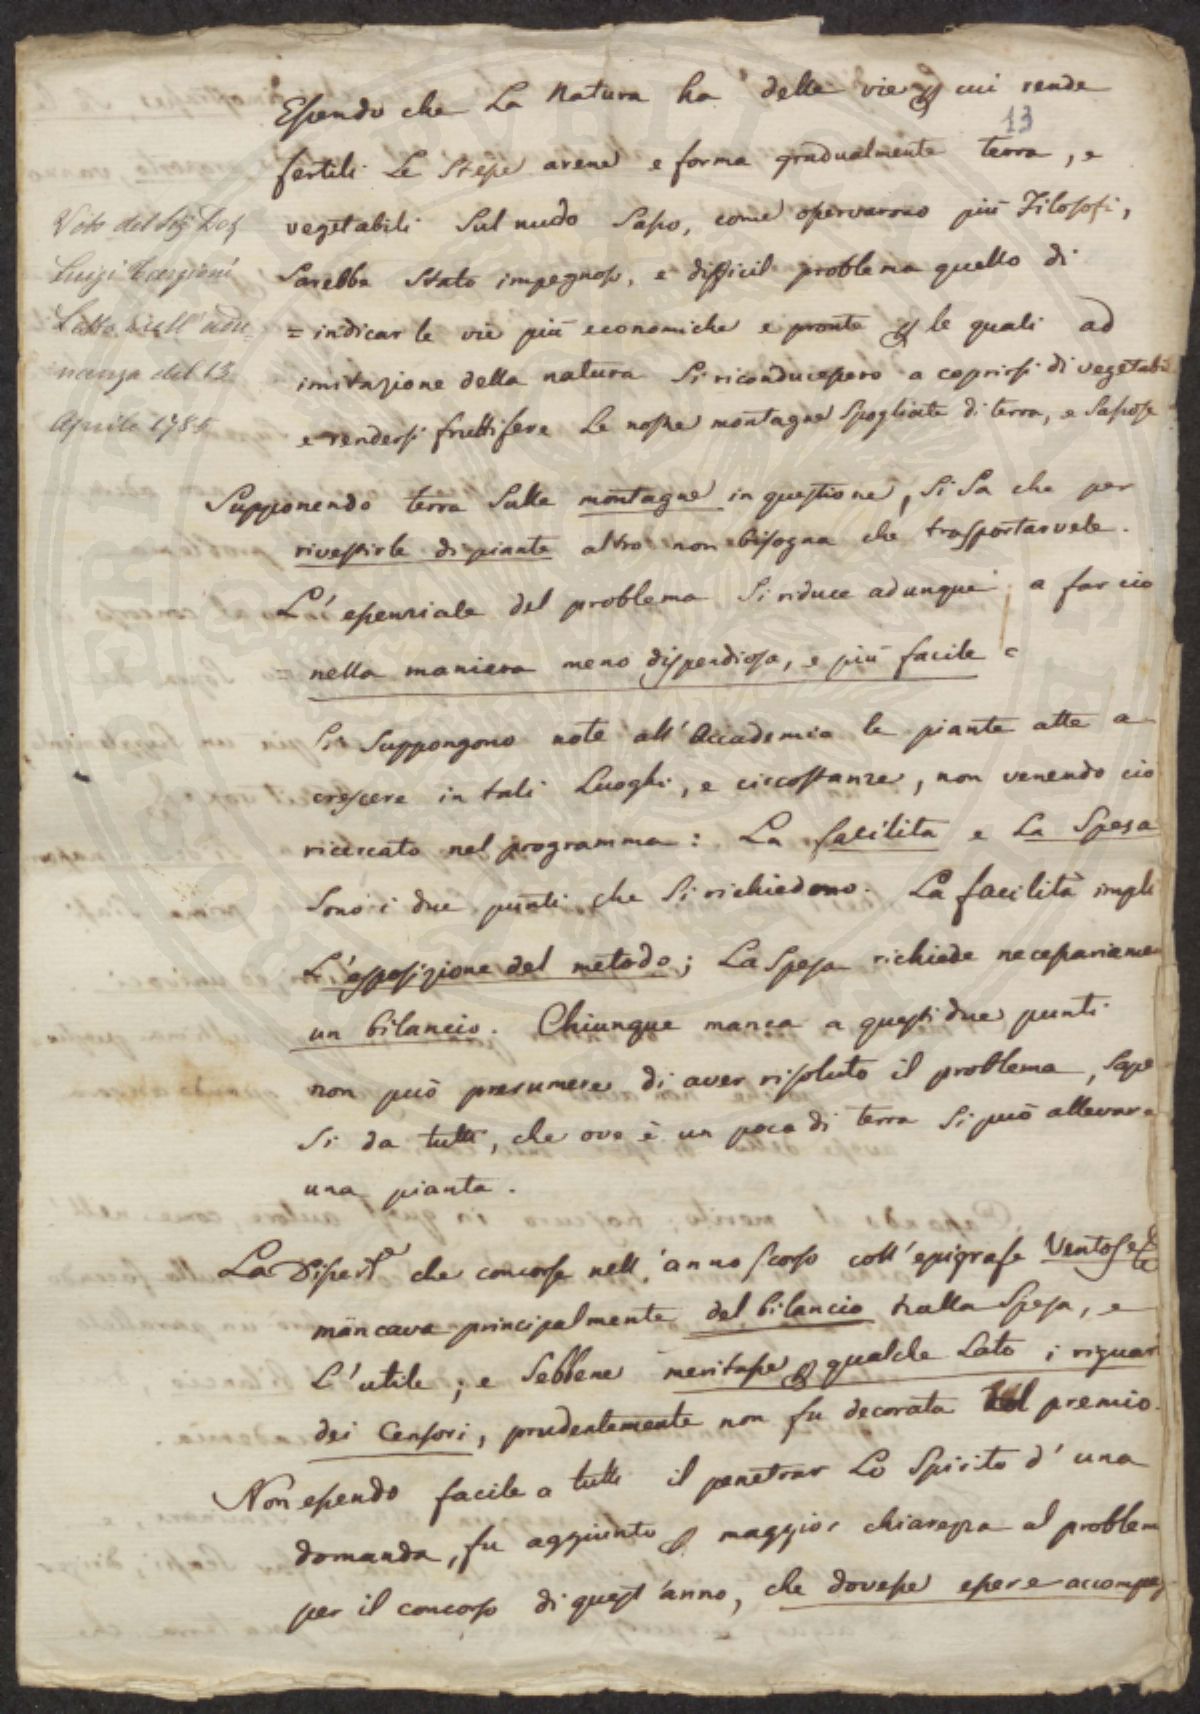 Essendo che La Natura ha delle vie per cui rende
13
fertili Le Stesse arene e forma gradualmente terra, e
vegetabili Sul nudo Sasso, come osservarono più Filosofi,
Sarebbe Stato impegnoso, e difficil problema quello di
= indicar le vie più economiche e pronte per le quali ad
imitazione della natura Si riconducessero a coprirsi di vegetabi
e rendersi fruttifere Le nostre montagne Spogliate di terra, e Sassose
Voto del Sig. Dor
Luigi Targioni
Letto nell'adu=
nanza del 13
Aprile 1785
Supponendo terra Sulle montagne in questione, Si Sa che per
rivestirle di piante altro non bisogna che trasportarvele.
L'essenziale del problema Si riduce adunque a far ciò
= nella maniera meno dispendiosa, e più facile =
Si Suppongono note all'Accademia le piante atte a
crescere in tali Luoghi, e circostanze, non venendo ciò
ricercato nel programma: La facilita e La Spesa
Sono i due punti che Si richiedono. La facilità impli
L'esposizione del metodo; La Spesa richiede necessariamen
un bilancio. Chiunque manca a questi due punti
non può presumere di aver risoluto il problema, Sape
Si da tutti, che ove è un poca di terra Si può allevare
una pianta.
La Dissert.e che concorse nell'anno scorso coll'epigrafe Ventose &c
mancava principalmente del bilancio tralla Spesa, e
L'utile; e Sebbene meritasse per qualche Lato i riguar
dei Censori, prudentemente non fu decorata del premio.
Non essendo facile a tutti il penetrar Lo Spirito d'una
domanda, fu aggiunto per maggior chiarezza al problem
per il concorso di quest'anno, che dovesse essere accompag